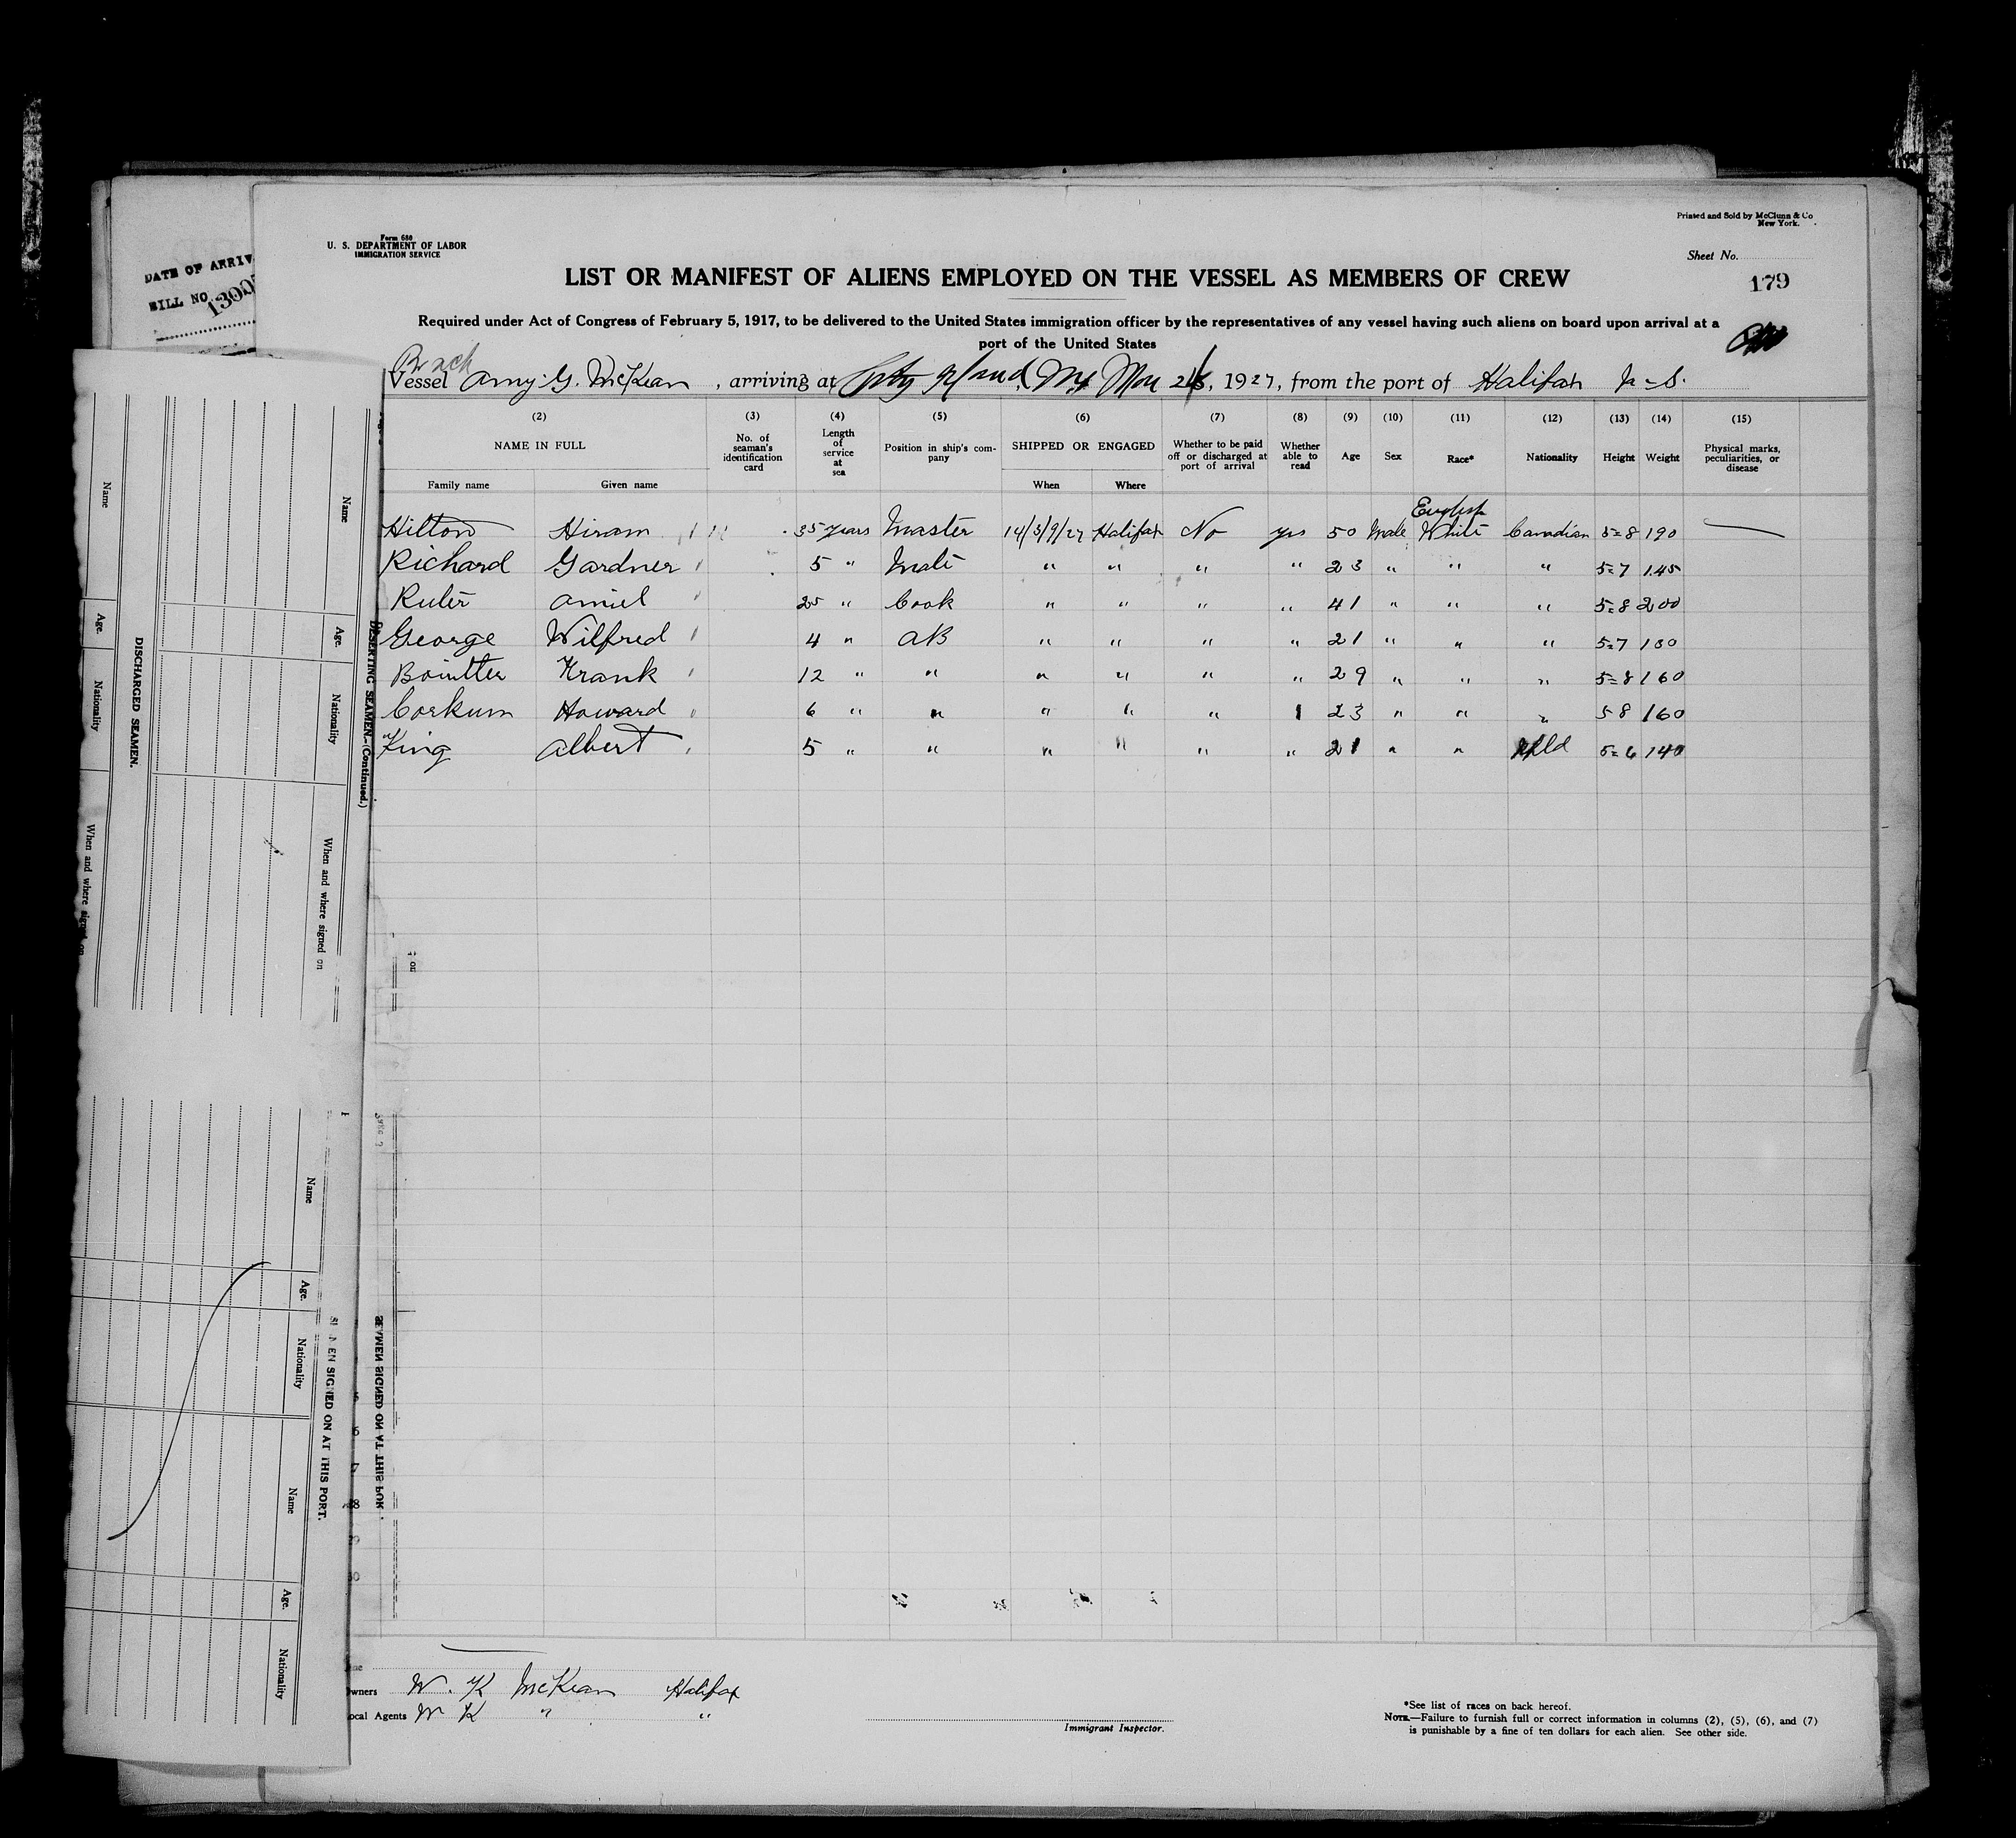 DATE OF ARRIV
BILL NO. 1300
Form 680
U. S. DEPARTMENT OF LABOR
IMMIGRATION SERVICE
Printed and Sold by McClunn & Co
New York.
Sheet No.
179
LIST OR MANIFEST OF ALIENS EMPLOYED ON THE VESSEL AS MEMBERS OF CREW
Required under Act of Congress of February 5, 1917, to be delivered to the United States immigration officer by the representatives of any vessel having such aliens on board upon arrival at a
port of the United States
Vessel Amy G. McKean, arriving at City Island, NY, 1927, from the port of Halifax N-S.
(2) (3) (4) (5) (6) (7) (8) (9) (10) (11) (12) (13) (14) (15)
NAME IN FULL No. of seaman's identification card Length of service at sea Position in ship's company SHIPPED OR ENGAGED Whether to be paid off or discharged at port of arrival Whether able to read Age Sex Race* Nationality Height Weight Physical marks, peculiarities, or disease
Family name Given name When Where
English
Hilton Hiram 35 years Master 14/3/9/27 Halifax No yes 50 Male White Canadian 5=8 190
Richard Gardner 5 " Mate " " " " 23 " " " 5=7 145
Ruler Amiel 25 " Cook " " " " 41 " " " 5=8 200
George Wilfred 4 " AB " " " " 21 " " " 5=7
Frank 12 " " " " " " 29 " " " 5=8 160
Corkum Howard 6 " " " " " 23 " " " 5 8 160
King Albert 5 " " " " " " 21 " " Nfld 5=6 140
Owners W. K McKean Halifax
ocal Agents W K " "
Immigrant Inspector.
*See list of races on back hereof.
NOTE.—Failure to furnish full or correct information in columns (2), (5), (6), and (7)
is punishable by a fine of ten dollars for each alien. See other side.
DESERTING SEAMEN.—(Continued.)
Name Age. Nationality When and where signed on
DISCHARGED SEAMEN.
Name Age. Nationality When and where signed on
EN SIGNED ON AT THIS PORT.
Name Age. Nationality Name Age. Nationality